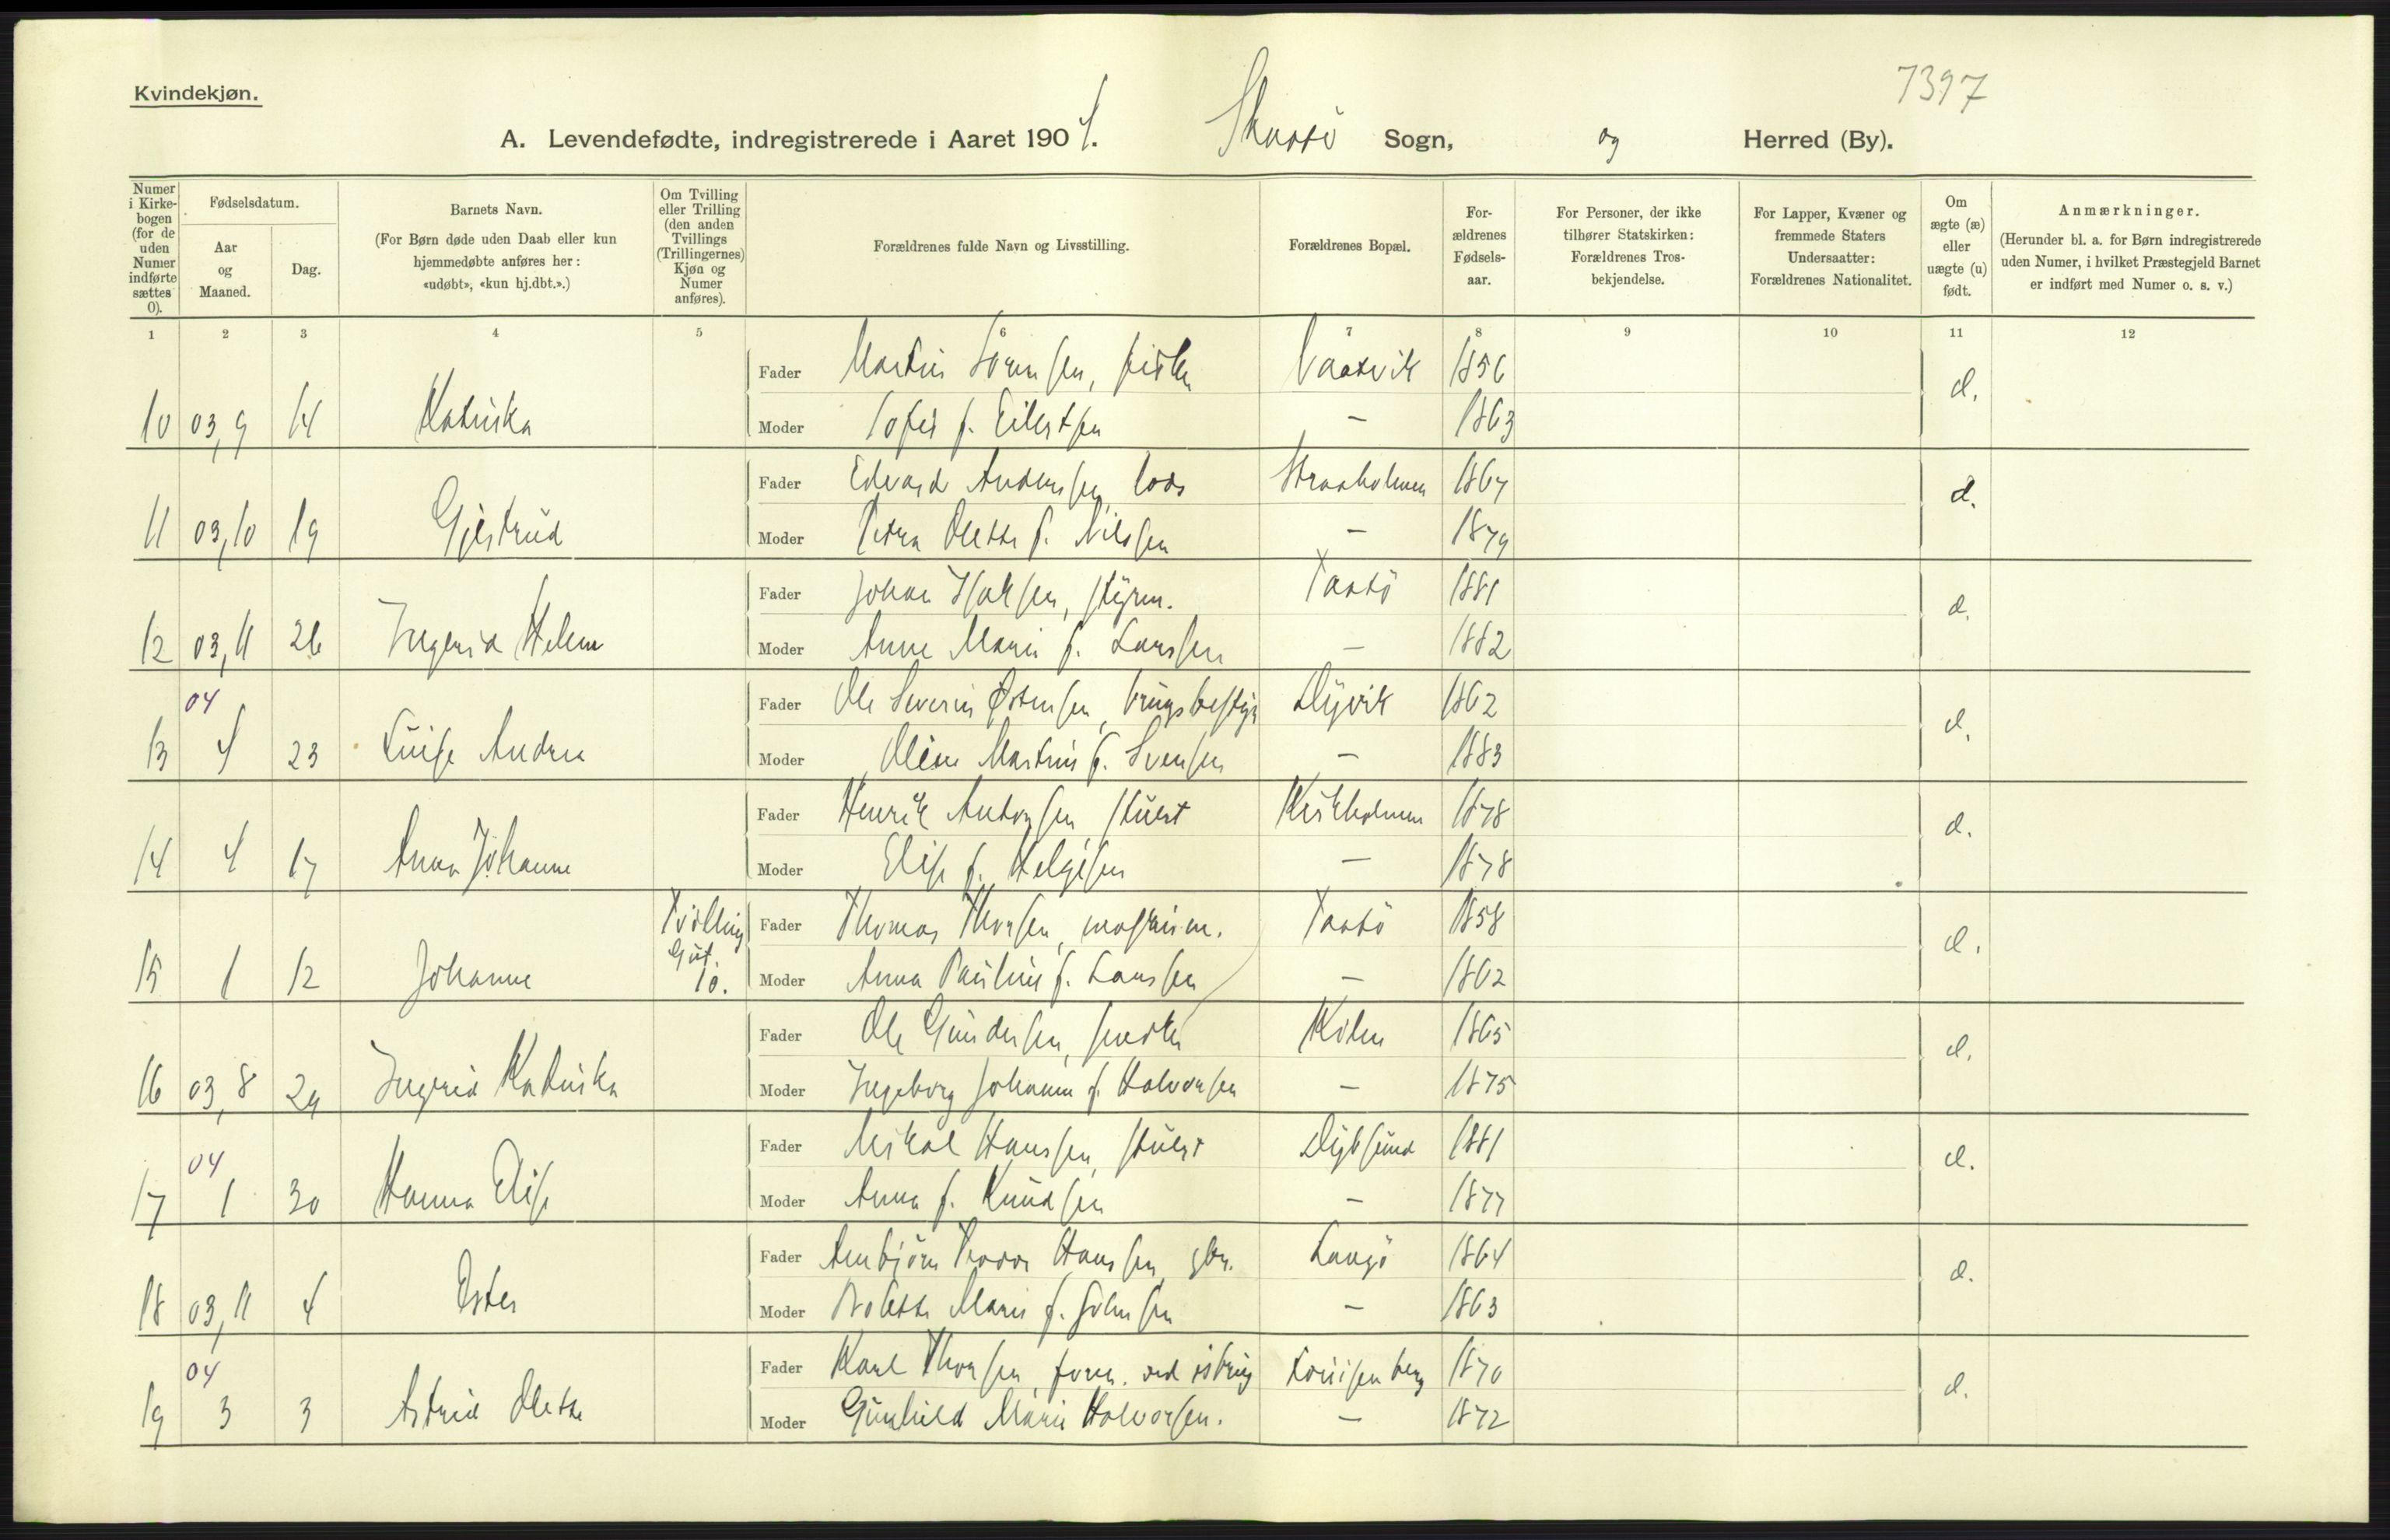 7397
Kvindekjøn.
A. Levendefødte, indregistrerede i Aaret 1904. Skaatø Sogn, og Herred (By).
Numer i Kirke-bogen (for de uden Numer indførte sættes 0).
Fødselsdatum.
Aar og Maaned.
Dag.
Barnets Navn.
(For Børn døde uden Daab eller kun hjemmedøbte anføres her: «udøbt», «kun hj.dbt.».)
Om Tvilling eller Trilling (den anden Tvillings (Trillingernes) Kjøn og Numer anføres).
Forældrenes fulde Navn og Livsstilling.
Forældrenes Bopæl.
For-ældrenes Fødsels-aar.
For Personer, der ikke tilhører Statskirken: Forældrenes Tros-bekjendelse.
For Lapper, Kvæner og fremmede Staters Undersaatter: Forældrenes Nationalitet.
Om ægte (æ) eller uægte (u) født.
Anmærkninger.
(Herunder bl. a. for Børn indregistrerede uden Numer, i hvilket Præstegjeld Barnet er indført med Numer o. s. v.)
1 2 3 4 5 6 7 8 9 10 11 12
Fader Martin Sørensen, fisker 1856
10 03,9 14 Katinka Moder Sofie f. Eilertsen — 1863
Fader Edvard Andersen, lods Straaholmen 1867
11 03,10 19 Gjertrud Moder Petra Olette f. Nilssen — 1879
Fader Johan Isaksen, styrm. Taatø 1881
12 03,11 26 Ingerid Helene Moder Anne Marie f. Larssen — 1882
04 Fader Ole Severin Østensen, brugsbestyr Dyvik 1862
13 4 23 Luise Andrea Moder Oline Martine f. Svensen — 1883
Fader Henrik Antonsen, stuert Kirkholmen 1878
14 4 17 Anna Johanne Moder Elise f. Helgesen — 1878
Tvilling Fader Thomas Thorsen, maskinm. Taatø 1858
Gut.
15 1 12 Johanne 10. Moder Anna Pauline f. Larssen — 1862
Fader Ole Gundersen, Kilen 1865
16 03,8 29 Ingrid Katinka Moder Ingeborg Johanne f. Halvorsen — 1875
04 Fader Mikal Hanssen, stuert Dybsund 1881
17 1 30 Hanna Elise Moder Anna f. Knudsen — 1877
Fader Anbjørn Hanssen, gbr. Langø 1864
18 03,11 4 Ester Moder Bolette Marie f. — 1863
04 Fader Karl Thorsen, form. ved isbrug Louisenberg 1870
19 3 3 Astrid Olette Moder Gunhild Marie Halvorsen. — 1872